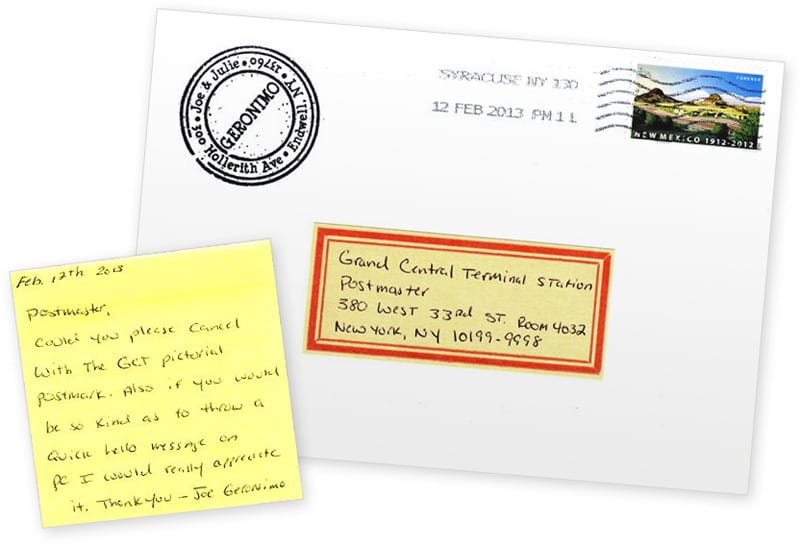 Joe & Julie • 13760 •
GERONIMO
300 Hollerith Ave • Endwell, NY
SYRACUSE NY 130
12 FEB 2013 PM 1 L
FOREVER
NEW MEXICO 1912-2012
Grand Central Terminal Station
Postmaster
380 West 33rd ST. Room 4032
New York, NY 10199-9998
Feb. 12th 2013
Postmaster,
Could you please Cancel
with The GCT pictorial
postmark. Also if you would
be so kind as to throw a
quick hello message on
pc I would really appreciate
it. Thank you - Joe Geronimo